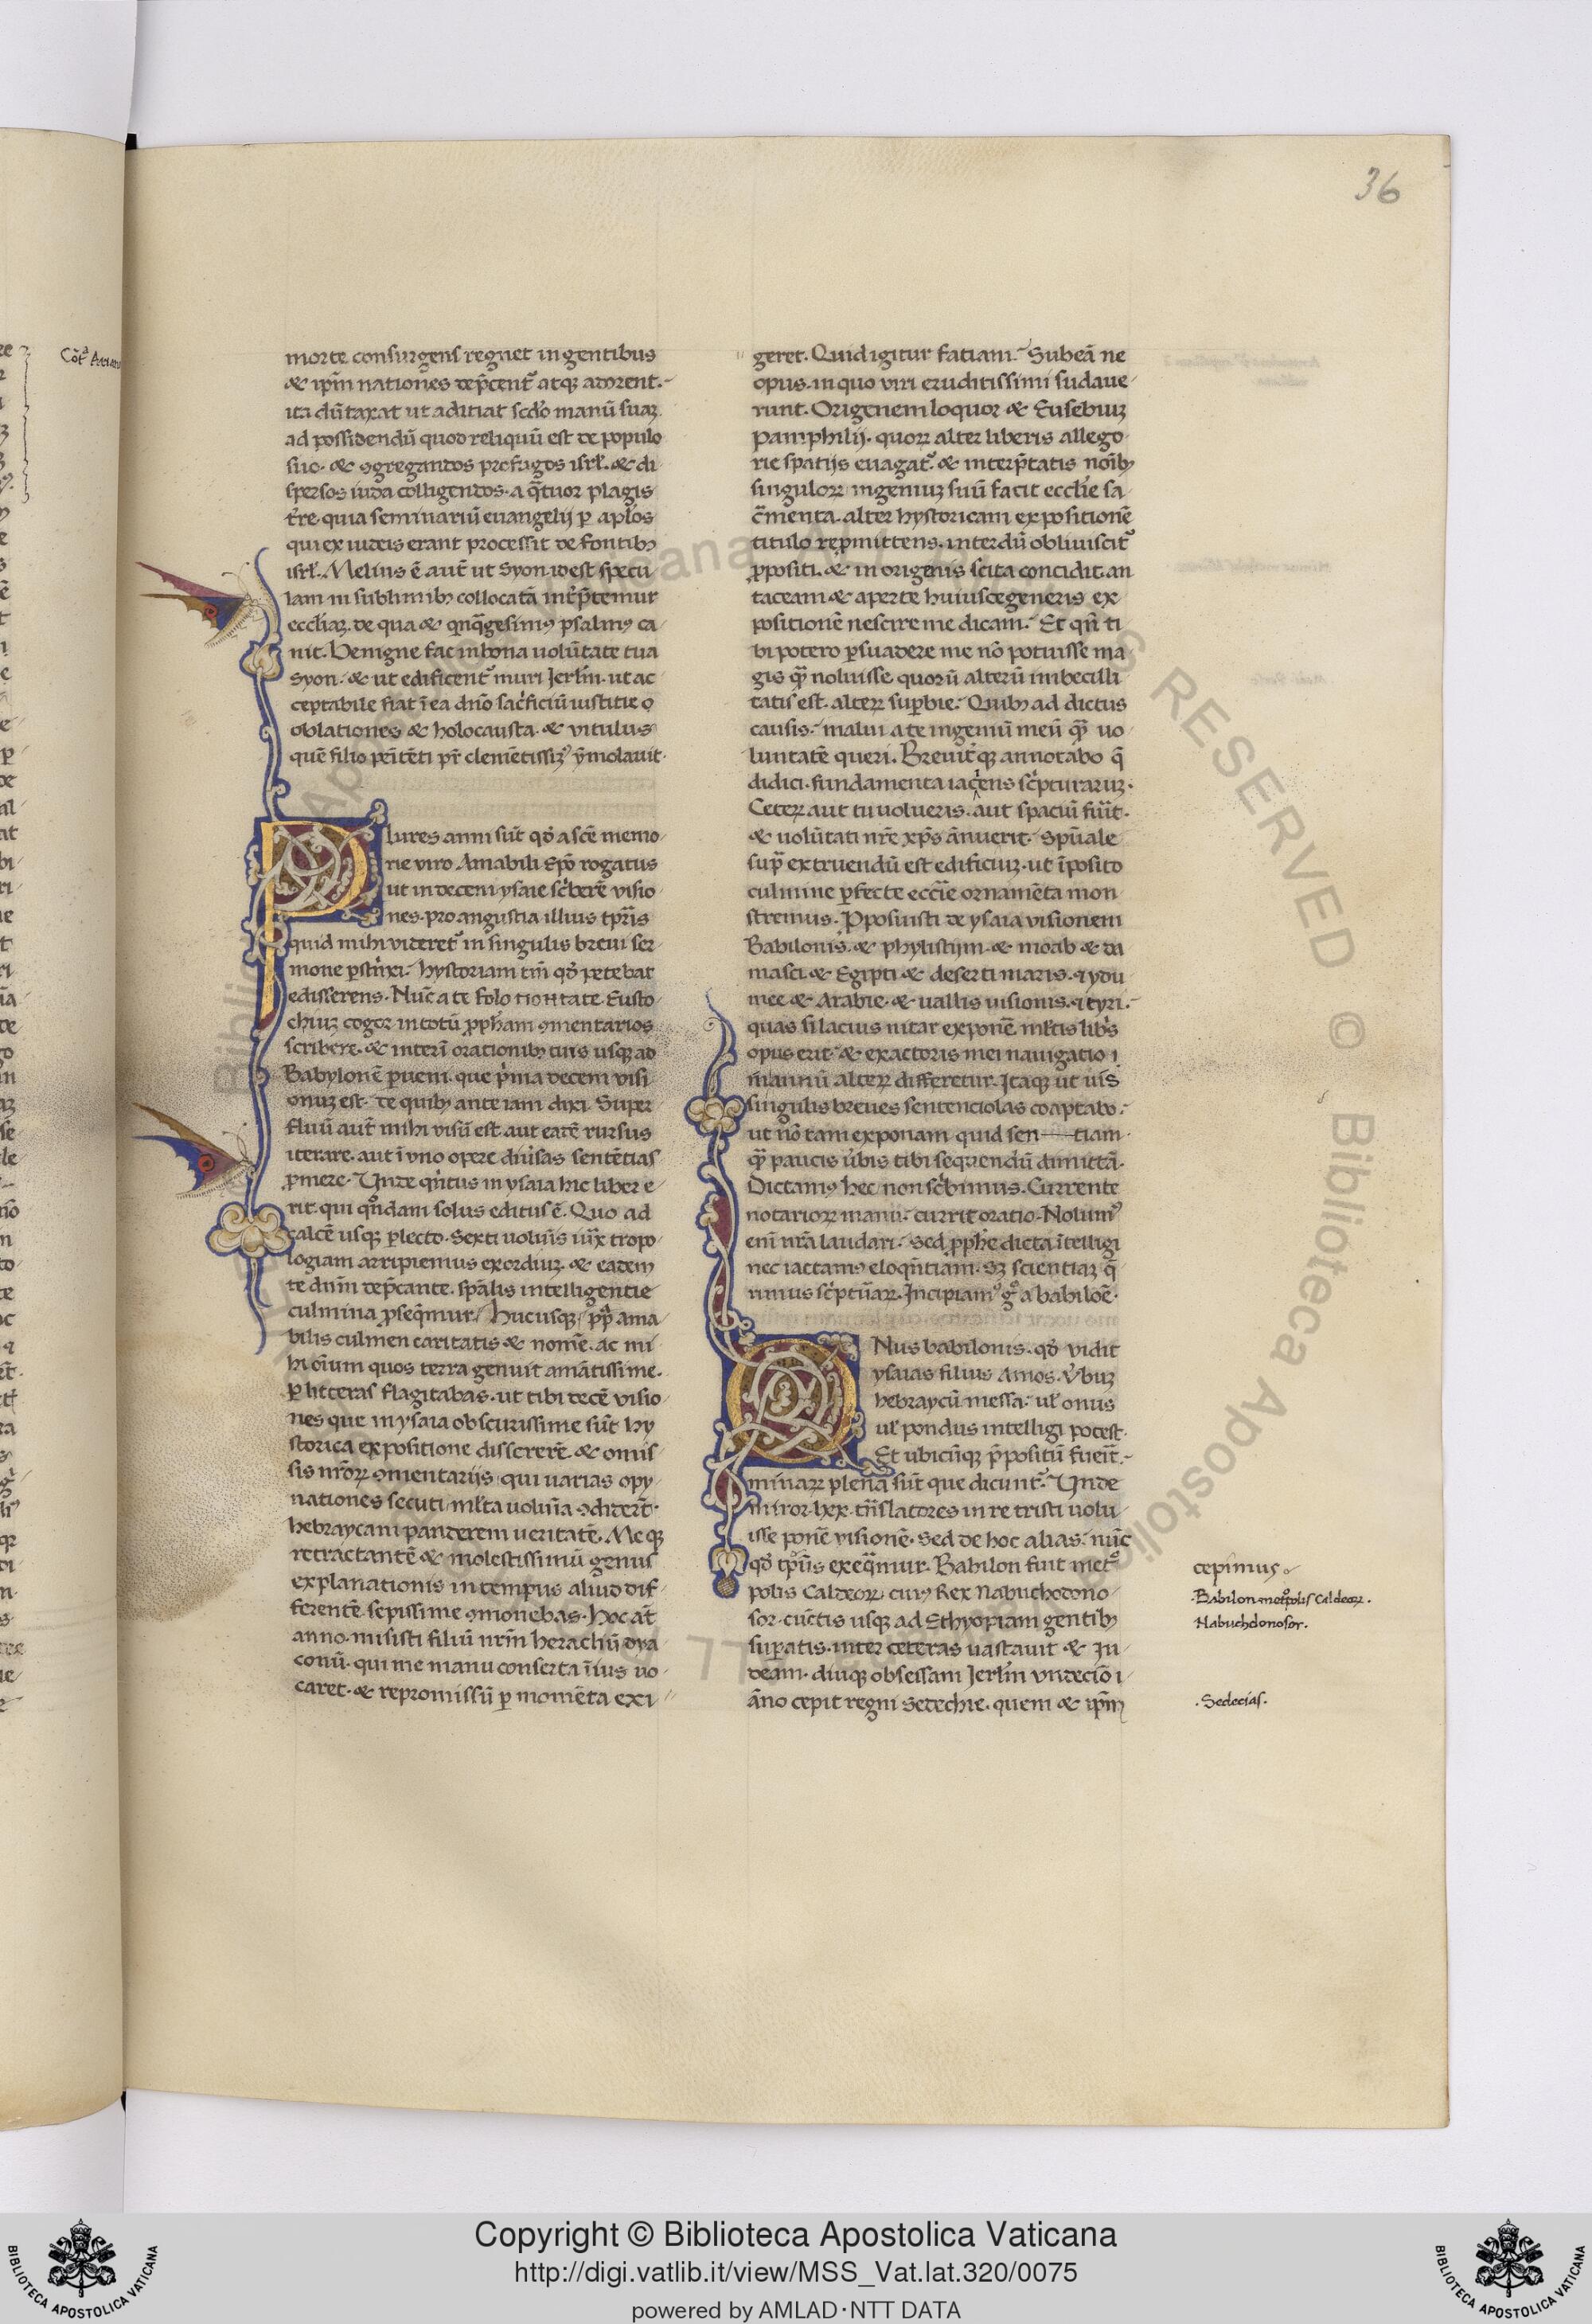 36
morte consurgens regnet in gentibus
& ip̃m nationes dep̃cent᷑ atq; adorent.
ita dũtaxat ut aditiat scdo manũ suaꝫ
ad possidendũ quod reliquũ est de populo
suo. & ꝯgregandos profugos isrł. & di
spersos iuda colligendos. a q̃tuor plagis
tr̃e. quia seminariũ euangelij ꝑ apłos
qui ex iudeis erant processit de fontibꝫ
isrł. Melius ẽ aut̃ ut Syon idest specu
lam in sublimibꝫ collocatã int̃p̃temur
eccłiaꝫ. de qua & qnq̃gesimꝰ psalmꝰ ca
nit. Benigne fac in bona uolũtate tua
Syon. & ut edificent᷑ muri Jerłm. ut ac
ceptabile fiat ĩ ea dño sac̓ficiũ iustitie
oblationes & holocausta. & vitulus
quẽ filio penitẽti pr̃ clemẽtissimꝰ ymolauit.
Plures anni sũt qđ a scẽ memo
rie viro Amabili Ep̃o rogatus
ut in decem ysaie sc̓berẽ visio
nes. pro angustia illius tp̃ris
quid mihi videret᷑ in singulis breui ser
mone pstr̃ixi. hystoriam tm̃ qđ petebat
edisserens. Nũc a te
chiuꝫ cogor in totũ ꝓph̃am ꝯmentarios
scribere. & interĩ orationibꝫ tuis usq; ad
Babylonẽ ꝑueni. que p̓ma decem visi
onuꝫ est. de quibꝫ ante iam dixi. Super
fluũ aut̃ mihi visũ est. aut eadẽ rursus
iterare. aut ĩ vno opere diu̓sas sentẽtias
ꝓmere. Unde qñtus in ysaia hic liber e
rit. qui qͦndam solus editus ẽ. Quo ad
calcẽ usq; ꝑlecto. Sexti uolum̃is iux̃ tropo
logiam arripiemus exordiuꝫ. & eadem
te dnm̃ dep̃cante. sp̃alis intelligentie
culmina ꝓseq̃mur. Hucusq; pp̃ ama
bilis culmen caritatis & nomẽ. ac mi
hi oĩum quos terra genuit amãtissime.
ꝑ litteras flagitabas. ut tibi decẽ visio
nes que in ysaia obscurissime sũt hy
storica expositione dissererẽ. & omis
sis nr̃oꝝ ꝯmentarijs qui uarias opy
nationes secuti młta uolum̃a ꝯdider̃t.
hebraycam panderem ueritatẽ. Me q;
retractantẽ & molestissimũ genus
explanationis in tempus aliud dif
ferentẽ sepissime ꝯmonebas. Hoc aũt
anno misisti filiũ nr̃m heracliũ dya
conũ. qui me manu conserta ĩ ius uo
caret. & repromissũ ꝑ momẽta exi
geret. Quid igitur fatiam. Subeã ne
opus. in quo viri eruditissimi sudaue
runt. Origenem loquor & Eusebiuꝫ
Pamphilij. quoꝝ alter liberis allego
rie spatijs euagat᷑. & interp̃tatis noĩbꝫ
singuloꝝ ingeniuꝫ suũ facit eccłie sa
c̃menta. alter hystoricam expositionẽ
titulo repmittens. interdũ obliuiscit᷑
ꝓpositi. & in origenis scita concidit. an
taceam & aperte huiuscegeneris ex
positionẽ nescire me dicam. Et qñ ti
bi potero ꝑsuadere me nõ potuisse ma
gis q̃ noluisse quorũ alterũ imbecilli
tatis est. alteꝝ supbie. Quibꝫ ad dictus
causis. malui a te ingeniũ meũ q̃ uo
luntatẽ queri. Breuit̓q; annotabo q̃
didici. fundamenta iac̓ens sc̓pturaruꝫ.
Ceteꝝ aut tu uolueris. aut spaciũ fuit̃.
& uolũtati nr̃e xp̃s ãnuerit. Spũale
sup̃ extruendũ est edificiuꝫ. ut ĩposito
culmine ꝑfecte eccłie ornamẽta mon
stremus. Pposuisti de ysaia visionem
Babilonis. & phylistijm. & moab & da
masci & Egipti & deserti maris. ⁊ ydu
mee & Arabie. & uallis uisionis. ⁊ tyri.
quas si lacius nitar exponẽ młtis lib̓s
opus erit. & exactoris mei nauigatio ĩ
ñannũ alteꝝ differetur. Itaq; ut uis
singulis breues sentenciolas coaptabo.
ut nõ tam exponam quid sen—tiam.
q̃ paucis u̓bis tibi sequendũ dimittã.
Dictamꝰ hec non sc̓bimus. Currente
notarioꝝ manu. currit oratio. Nolumꝰ
eni nr̃a laudari. Sed ꝓph̃e dicta ĩtelligi
nec iactamꝰ eloqñtiam. Sꝫ scientiaꝫ q̃
rimus sc̓ptur̃aꝝ. Incipiamꝰ gͦ a babiloẽ.
ONus babilonis. qđ vidit
ysaias filius Amos. V̓buꝫ
hebraycũ messa. uł onus
uł pondus intelligi potest.
Et ubicũq; p̃positũ fueĩt.
minaꝝ plena sũt que dicunt᷑. Unde
miror. lxx. trñslatores in re tristi uolu
isse ponẽ visionẽ. Sed de hoc alias. nũc
qđ exeq̃mur. Babilon fuit metͦ
polis Caldeoꝝ cuiꝰ Rex Nabuchodono
sor. cũctis usq; ad Ethyopiam gentibꝫ
supatis. inter ceteras uastauit & Iu
deam. diuq; obsessam Jerłm vndecĩo
ãno cepit regni Sedechie. quem & ip̃m
cepimus
.Babilon metͦpolis Caldeoꝝ.
Nabuchdonosor.
.Sedecias.
Copyright © Biblioteca Apostolica Vaticana
http://digi.vatlib.it/view/MSS_Vat.lat.320/0075
powered by AMLAD·NTT DATA
BIBLIOTECA APOSTOLICA VATICANA
BIBLIOTECA APOSTOLICA VATICANA